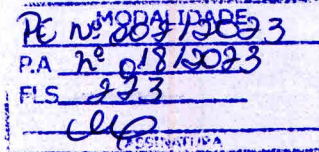 MODALIDADE
PE Nº 202712023
P.A nº 01812023
FLS 223
ASSINATURA